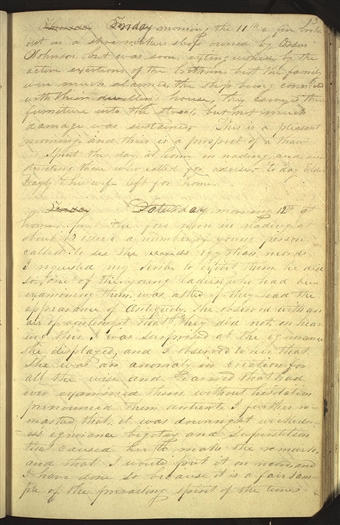 Thursday Friday morning the 11th a fire broke
out in a shoe makers shop owned by Orson
Johnson but was soon extinguished by the
active exertions of the citizens but the family
were much alarmed the shop being connected
with their dwelling house, they carried their
furniture into the street, but not much
damage was sustained. This is a pleasant
morning and there is a prospect of a thaw
I spent the day at home in reading and in
structing those who called for advise to day Elder
Beach & his wife left for home.
Saturday morning 12th at
home in the forenoon in reading
about 12 oclock a number of young persons
called to see the records Egyptian records
I requested my Scribe to exhibit them he did
so, one of the young ladies, who had been
examining them, was asked if they had the
appearance of Antiquity, she observed with an
air of contempt that they did not, on hear
ing this I was surprised at the ignorance
she displayed, and I observed to her that
she was an anomaly in creation for
all the wise and learned that had
ever examined them without hesitation
pronounced them antient, I further re
marked that, it was downright wicked
ness ignorance bigotry and superstition
that caused her to make the remark,
and that I would put it on record, and
I have done so because it is a fair sam
ple of the prevailing spirit of the times